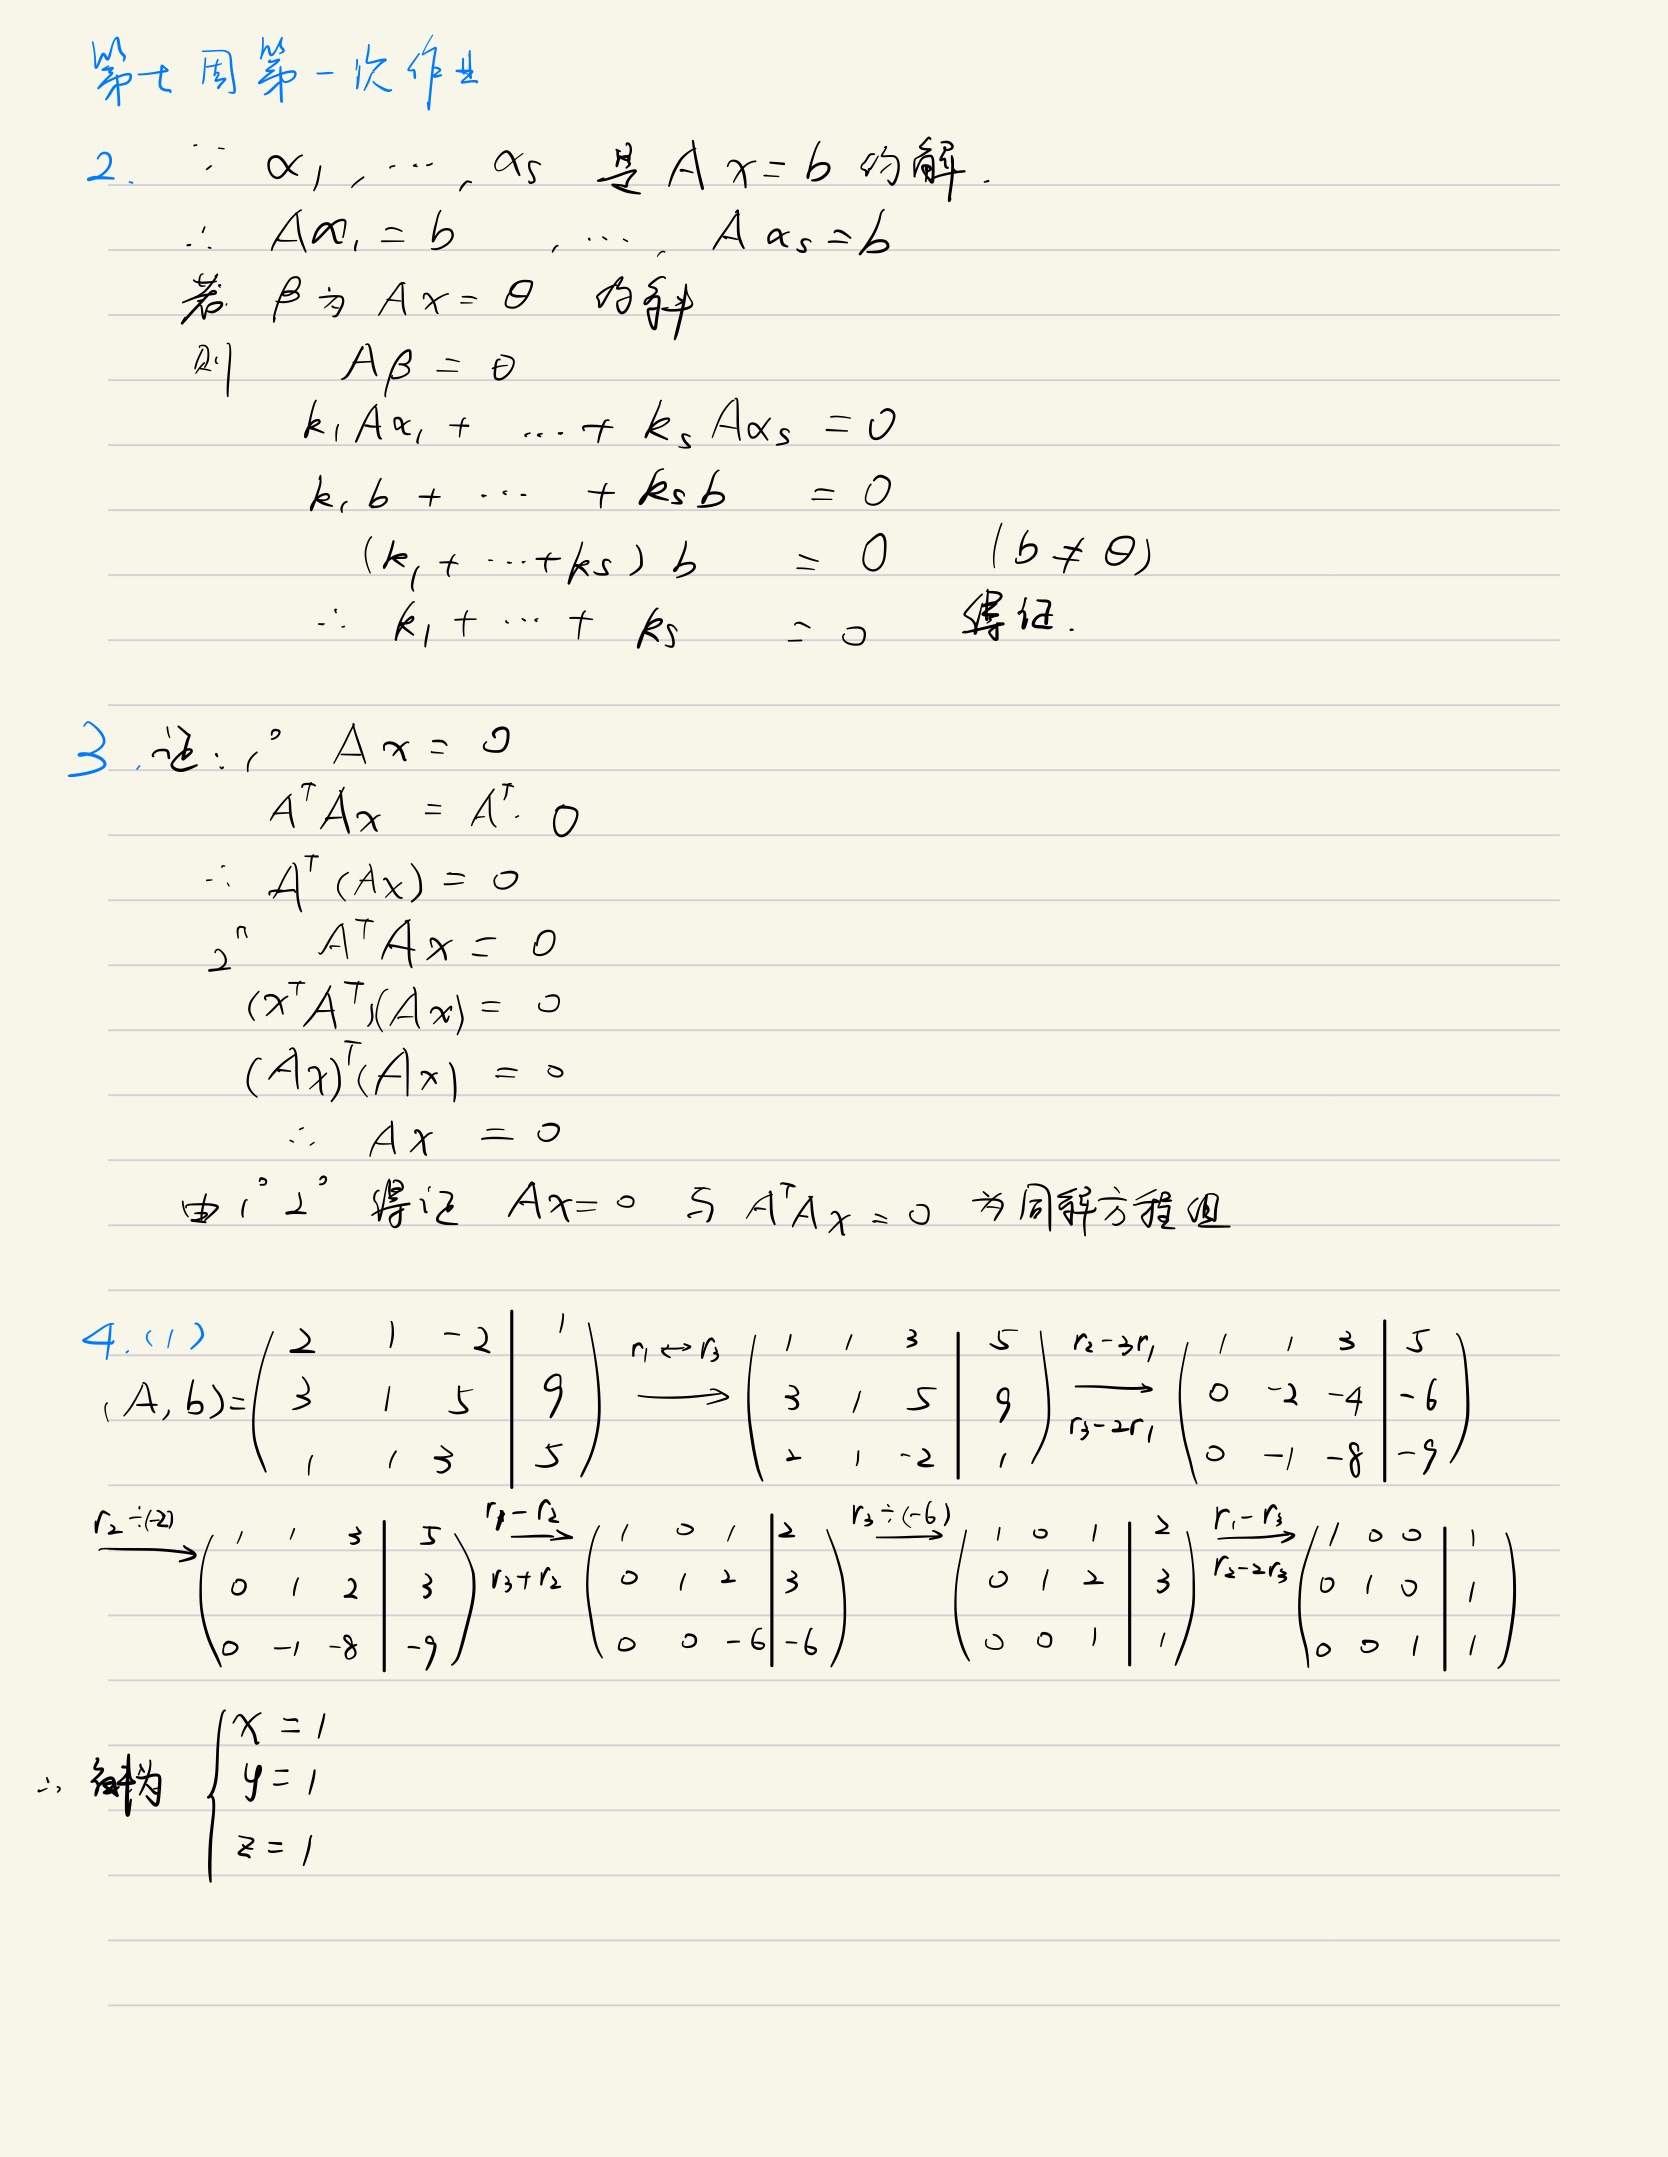 第七周第一次作业
2. ∵ α₁, ⋯, αs 是 Ax=b 的解.
∴ Aα₁=b , ⋯, Aαs=b
若 β为 Ax=θ 的解
则 Aβ=0
k₁Aα₁+ ⋯+ ksAαs =0
k₁b+ ⋯ +ksb =0
(k₁+⋯+ks)b =0 (b≠θ)
∴ k₁+⋯+ ks =0 得证.
3.证: 1° Ax=0
AᵀAx =Aᵀ·0
∴ Aᵀ(Ax)=0
2° AᵀAx=0
(xᵀAᵀ)(Ax)=0
(Ax)ᵀ(Ax) =0
∴ Ax =0
由1° 2° 得证 Ax=0 与 AᵀAx=0 为同解方程组
4.(1)
(A,b)= (2 1 -2 | 1; 3 1 5 | 9; 1 1 3 | 5) r₁↔r₃ → (1 1 3 | 5; 3 1 5 | 9; 2 1 -2 | 1) r₂-3r₁ → r₃-2r₁ (1 1 3 | 5; 0 -2 -4 | -6; 0 -1 -8 | -9)
r₂÷(-2) → (1 1 3 | 5; 0 1 2 | 3; 0 -1 -8 | -9) r₁-r₂ → r₃+r₂ (1 0 1 | 2; 0 1 2 | 3; 0 0 -6 | -6) r₃÷(-6) → (1 0 1 | 2; 0 1 2 | 3; 0 0 1 | 1) r₁-r₃ → r₂-2r₃ (1 0 0 | 1; 0 1 0 | 1; 0 0 1 | 1)
∴ 解为 { x=1
y=1
z=1